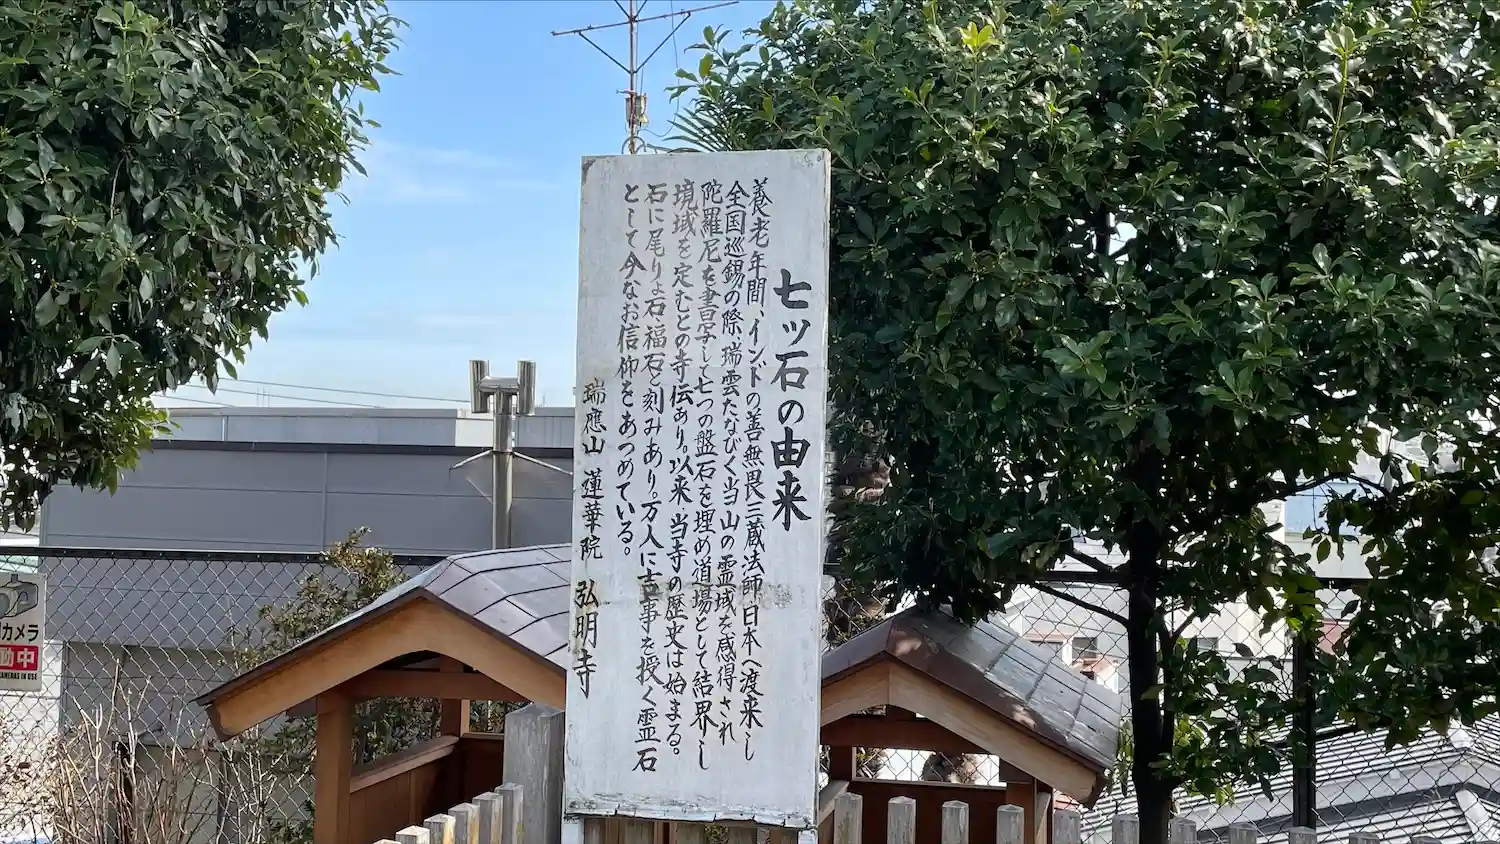 七ッ石の由来
養老年間、インドの善無畏三蔵法師日本へ渡来し
全国巡錫の際、瑞雲たなびく当山の霊域を感得され
陀羅尼を書写して七つの盤石を埋め道場として結界し
境域を定むとの寺伝あり。以来、当寺の歴史は始まる。
石に尾りょ石・福石と刻みあり。万人に吉事を授く霊石
として今なお信仰をあつめている。
瑞應山 蓮華院 弘明寺
カメラ
動中
CAMERAS IN USE